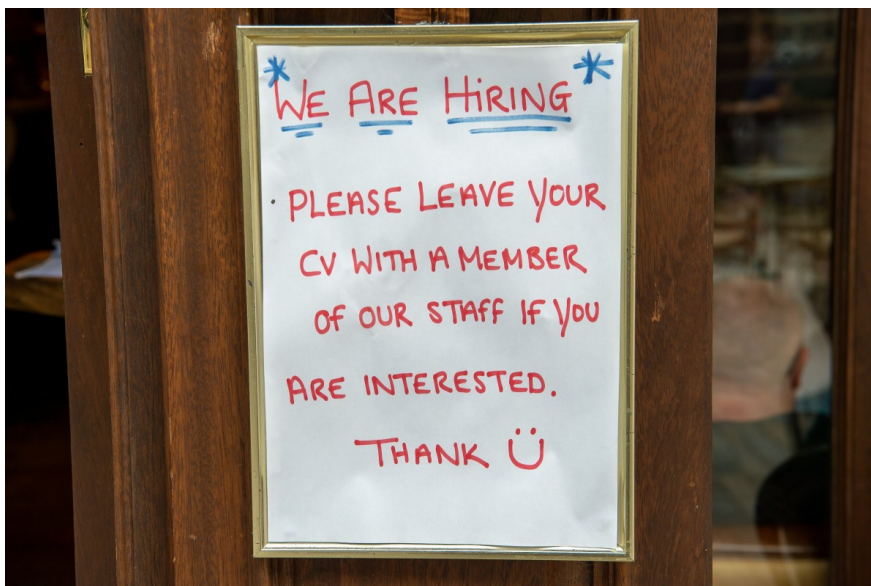 * WE ARE HiRiNG *
PLEASE LEAVE YOUR
CV WITH A MEMBER
OF OUR STAFF IF YOU
ARE INTERESTED.
THANK Ü